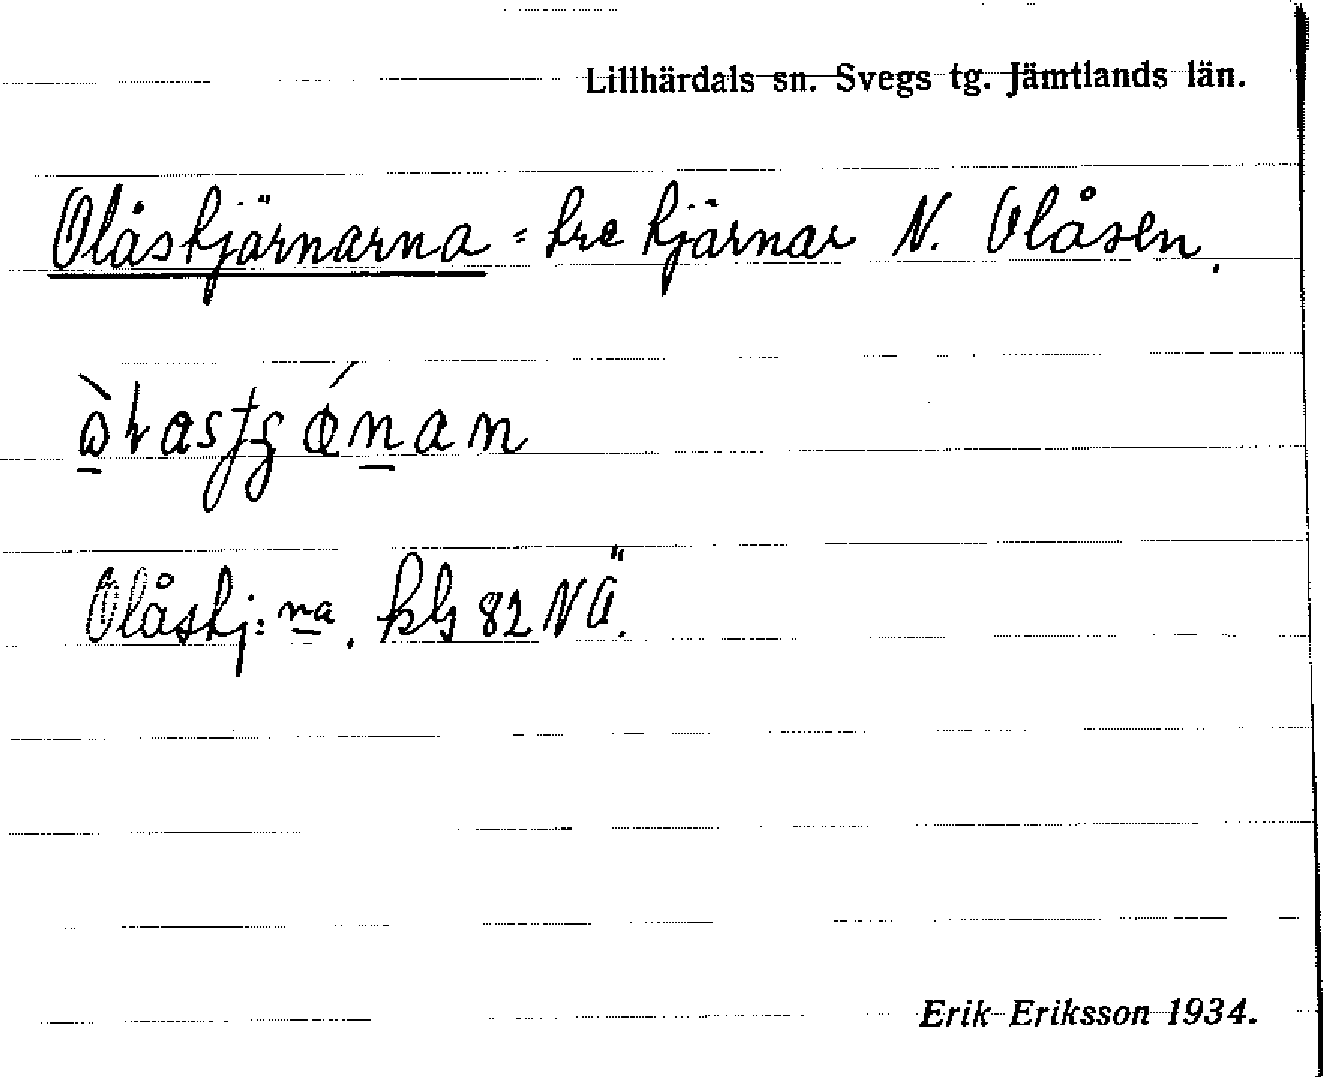 Lillhärdals sn. Svegs tg. Jämtlands län.
Olåstjärnarna = tre tjärnar N. Olåsen.
Olåstj:na. kbl 82 NÖ.
Erik Eriksson 1934.